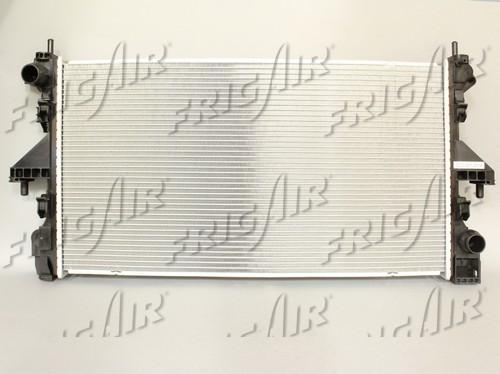 FRIGAIR
FRIGAIR
FRIGAIR
FRIGAIR
FRIGAIR
FRIGAIR
FRIGAIR
FRIGAIR
FRIGAIR